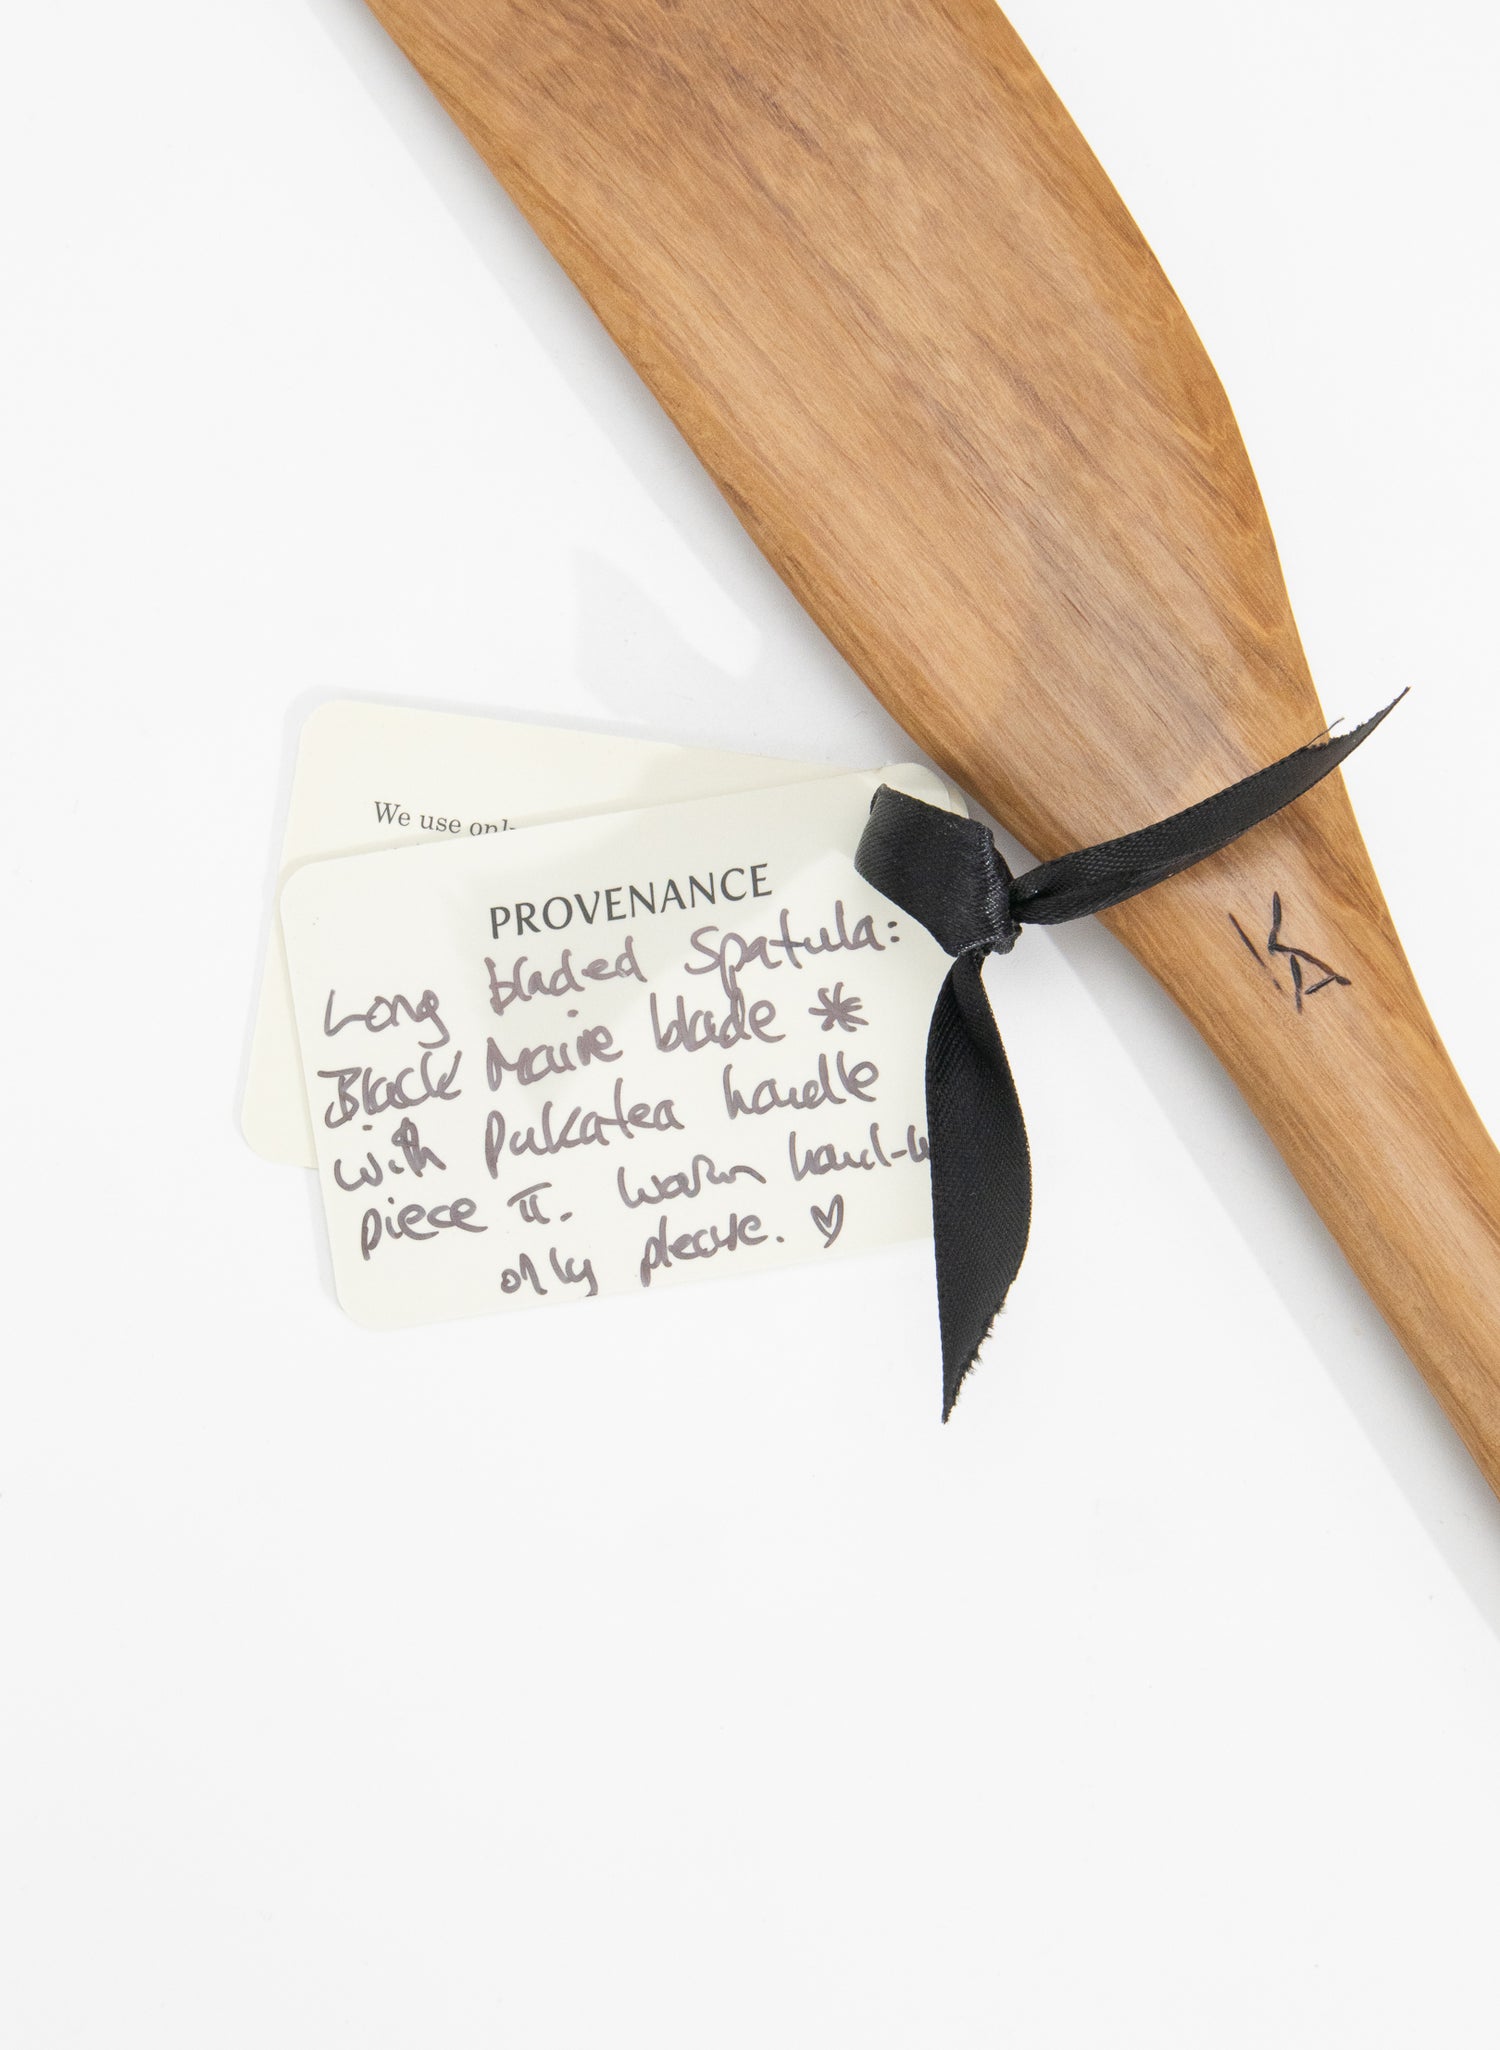 We use only
PROVENANCE
Long bladed Spatula:
Black Maire blade *
with Pukatea handle
piece II. Warm hand-w
only please. ♡